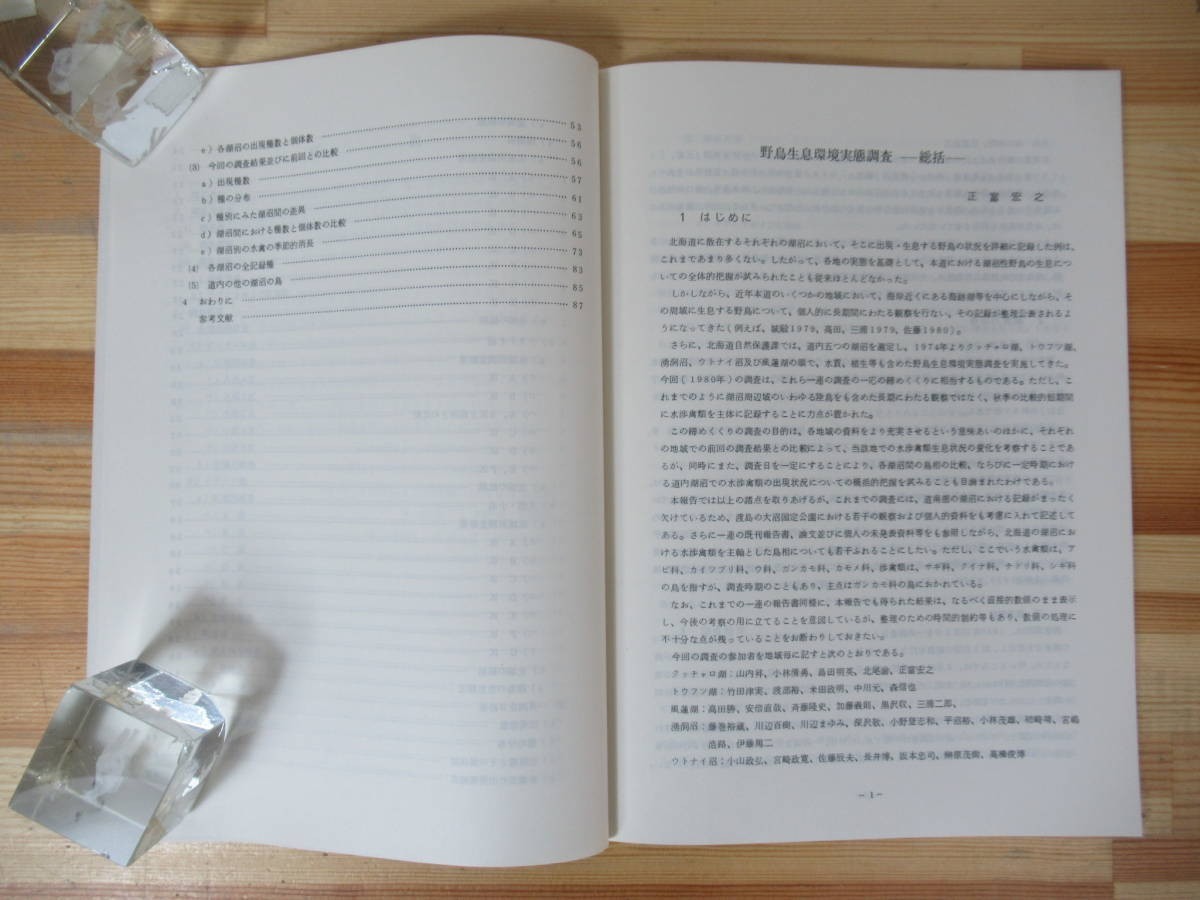 e) 各湖沼の出現種数と個体数 53
(3) 今回の調査結果並びに前回との比較 56
a) 出現種数 56
b) 種の分布 57
c) 種別にみた湖沼間の差異 61
d) 湖沼間における種数と個体数の比較 63
e) 湖沼別の水禽の季節的消長 65
(4) 各湖沼の全記録種 73
(5) 道内の他の湖沼の鳥 83
4 おわりに 85
参考文献 87
野鳥生息環境実態調査 ―総括―
正富宏之
1 はじめに
北海道に散在するそれぞれの湖沼において、そこに出現・生息する野鳥の状況を詳細に記録した例は、
これまであまり多くない。したがって、各地の実態を基礎として、本道における湖沼性野鳥の生息につ
いての全体的把握が試みられたことも従来ほとんどなかった。
しかしながら、近年本道のいくつかの地域において、海岸近くにある海跡湖等を中心にしながら、そ
の周域に生息する野鳥について、個人的に長期間にわたる観察を行ない、その記録が整理公表されるよ
うになってきた(例えば、城殿1979、高田、三浦1979、佐藤1980)。
さらに、北海道自然保護課では、道内五つの湖沼を選定し、1974年よりクッチャロ湖、トウフツ湖、
湧洞沼、ウトナイ沼及び風蓮湖の順で、水質、植生等も含めた野鳥生息環境実態調査を実施してきた。
今回(1980年)の調査は、これら一連の調査の一応の締めくくりに相当するものである。ただし、こ
れまでのように湖沼周辺域のいわゆる陸鳥をも含めた長期にわたる観察ではなく、秋季の比較的短期間
に水渉禽類を主体に記録することに力点が置かれた。
この締めくくりの調査の目的は、各地域の資料をより充実させるという意味あいのほかに、それぞれ
の地域での前回の調査結果との比較によって、当該地での水渉禽類生息状況の変化を考察することであ
るが、同時にまた、調査日を一定にすることにより、各湖沼間の鳥相の比較、ならびに一定時期におけ
る道内湖沼での水渉禽類の出現状況についての横括的把握を試みることも目論まれたわけである。
本報告では以上の諸点を取りあげるが、これまでの調査には、道南部の湖沼における記録がまったく
欠けているため、渡島の大沼国定公園における若干の観察および個人的資料をも考慮に入れて記述して
ある。さらに一連の既刊報告書、論文並びに個人の未発表資料等をも参照しながら、北海道の湖沼にお
ける水渉禽類を主軸とした鳥相についても若干ふれることにしたい。ただし、ここでいう水禽類は、ア
ビ科、カイツブリ科、ウ科、ガンカモ科、カモメ科、渉禽類は、サギ科、クイナ科、チドリ科、シギ科
の鳥を指すが、調査時期のこともあり、主点はガンカモ科の鳥におかれている。
なお、これまでの一連の報告書同様に、本報告でも得られた結果は、なるべく直接的数値のまま表示
し、今後の考察の用に立てることを意図しているが、整理のための時間的制約等もあり、数値の処理に
不十分な点が残っていることをお断わりしておきたい。
今回の調査の参加者を地域毎に記すと次のとおりである。
クッチャロ湖:山内祥、小林清勇、島田明英、北尾諭、正富宏之
トウフツ湖:竹田津実、渡部裕、米田政明、中川元、森信也
風蓮湖:高田勝、安倍直哉、斉藤隆史、加藤義則、黒沢収、三浦二郎、
湧洞沼:藤巻裕蔵、川辺百樹、川辺まゆみ、深沢敬、小野登志和、平沼裕、小林茂雄、柿崎蒂、宮嶋
浩路、伊藤周二
ウトナイ沼:小山政弘、宮崎政寛、佐藤辰夫、長井博、坂本忠司、榊原茂樹、高橋俊博
-1-